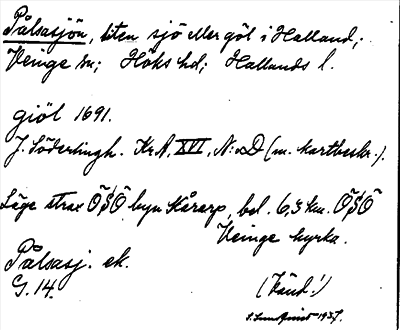 Pålsasjön, liten sjö eller göl i Halland;
Veinge sn; Höks hd; Hallands l.
giöl 1691.
J. Söderlingh. Kr A, XVI, N:o D (m. kartbeskr.).
Läge strax ÖSÖ byn Kårarp, bel. 6,5 km. ÖSÖ
Veinge kyrka.
Pålsasj. ek.
G. 14.
(Känd!)
S. Lundquist 1937.